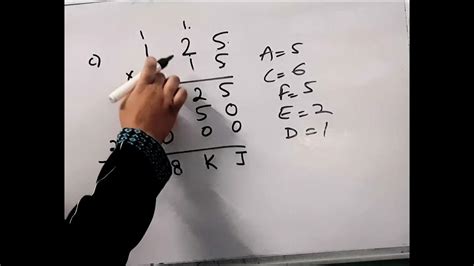 1 1.
c) 1 2 5 A = 5
x 1 5 C = 6
2 5 F = 5
5 0 E = 2
2 0 0 0 D = 1
8 K J